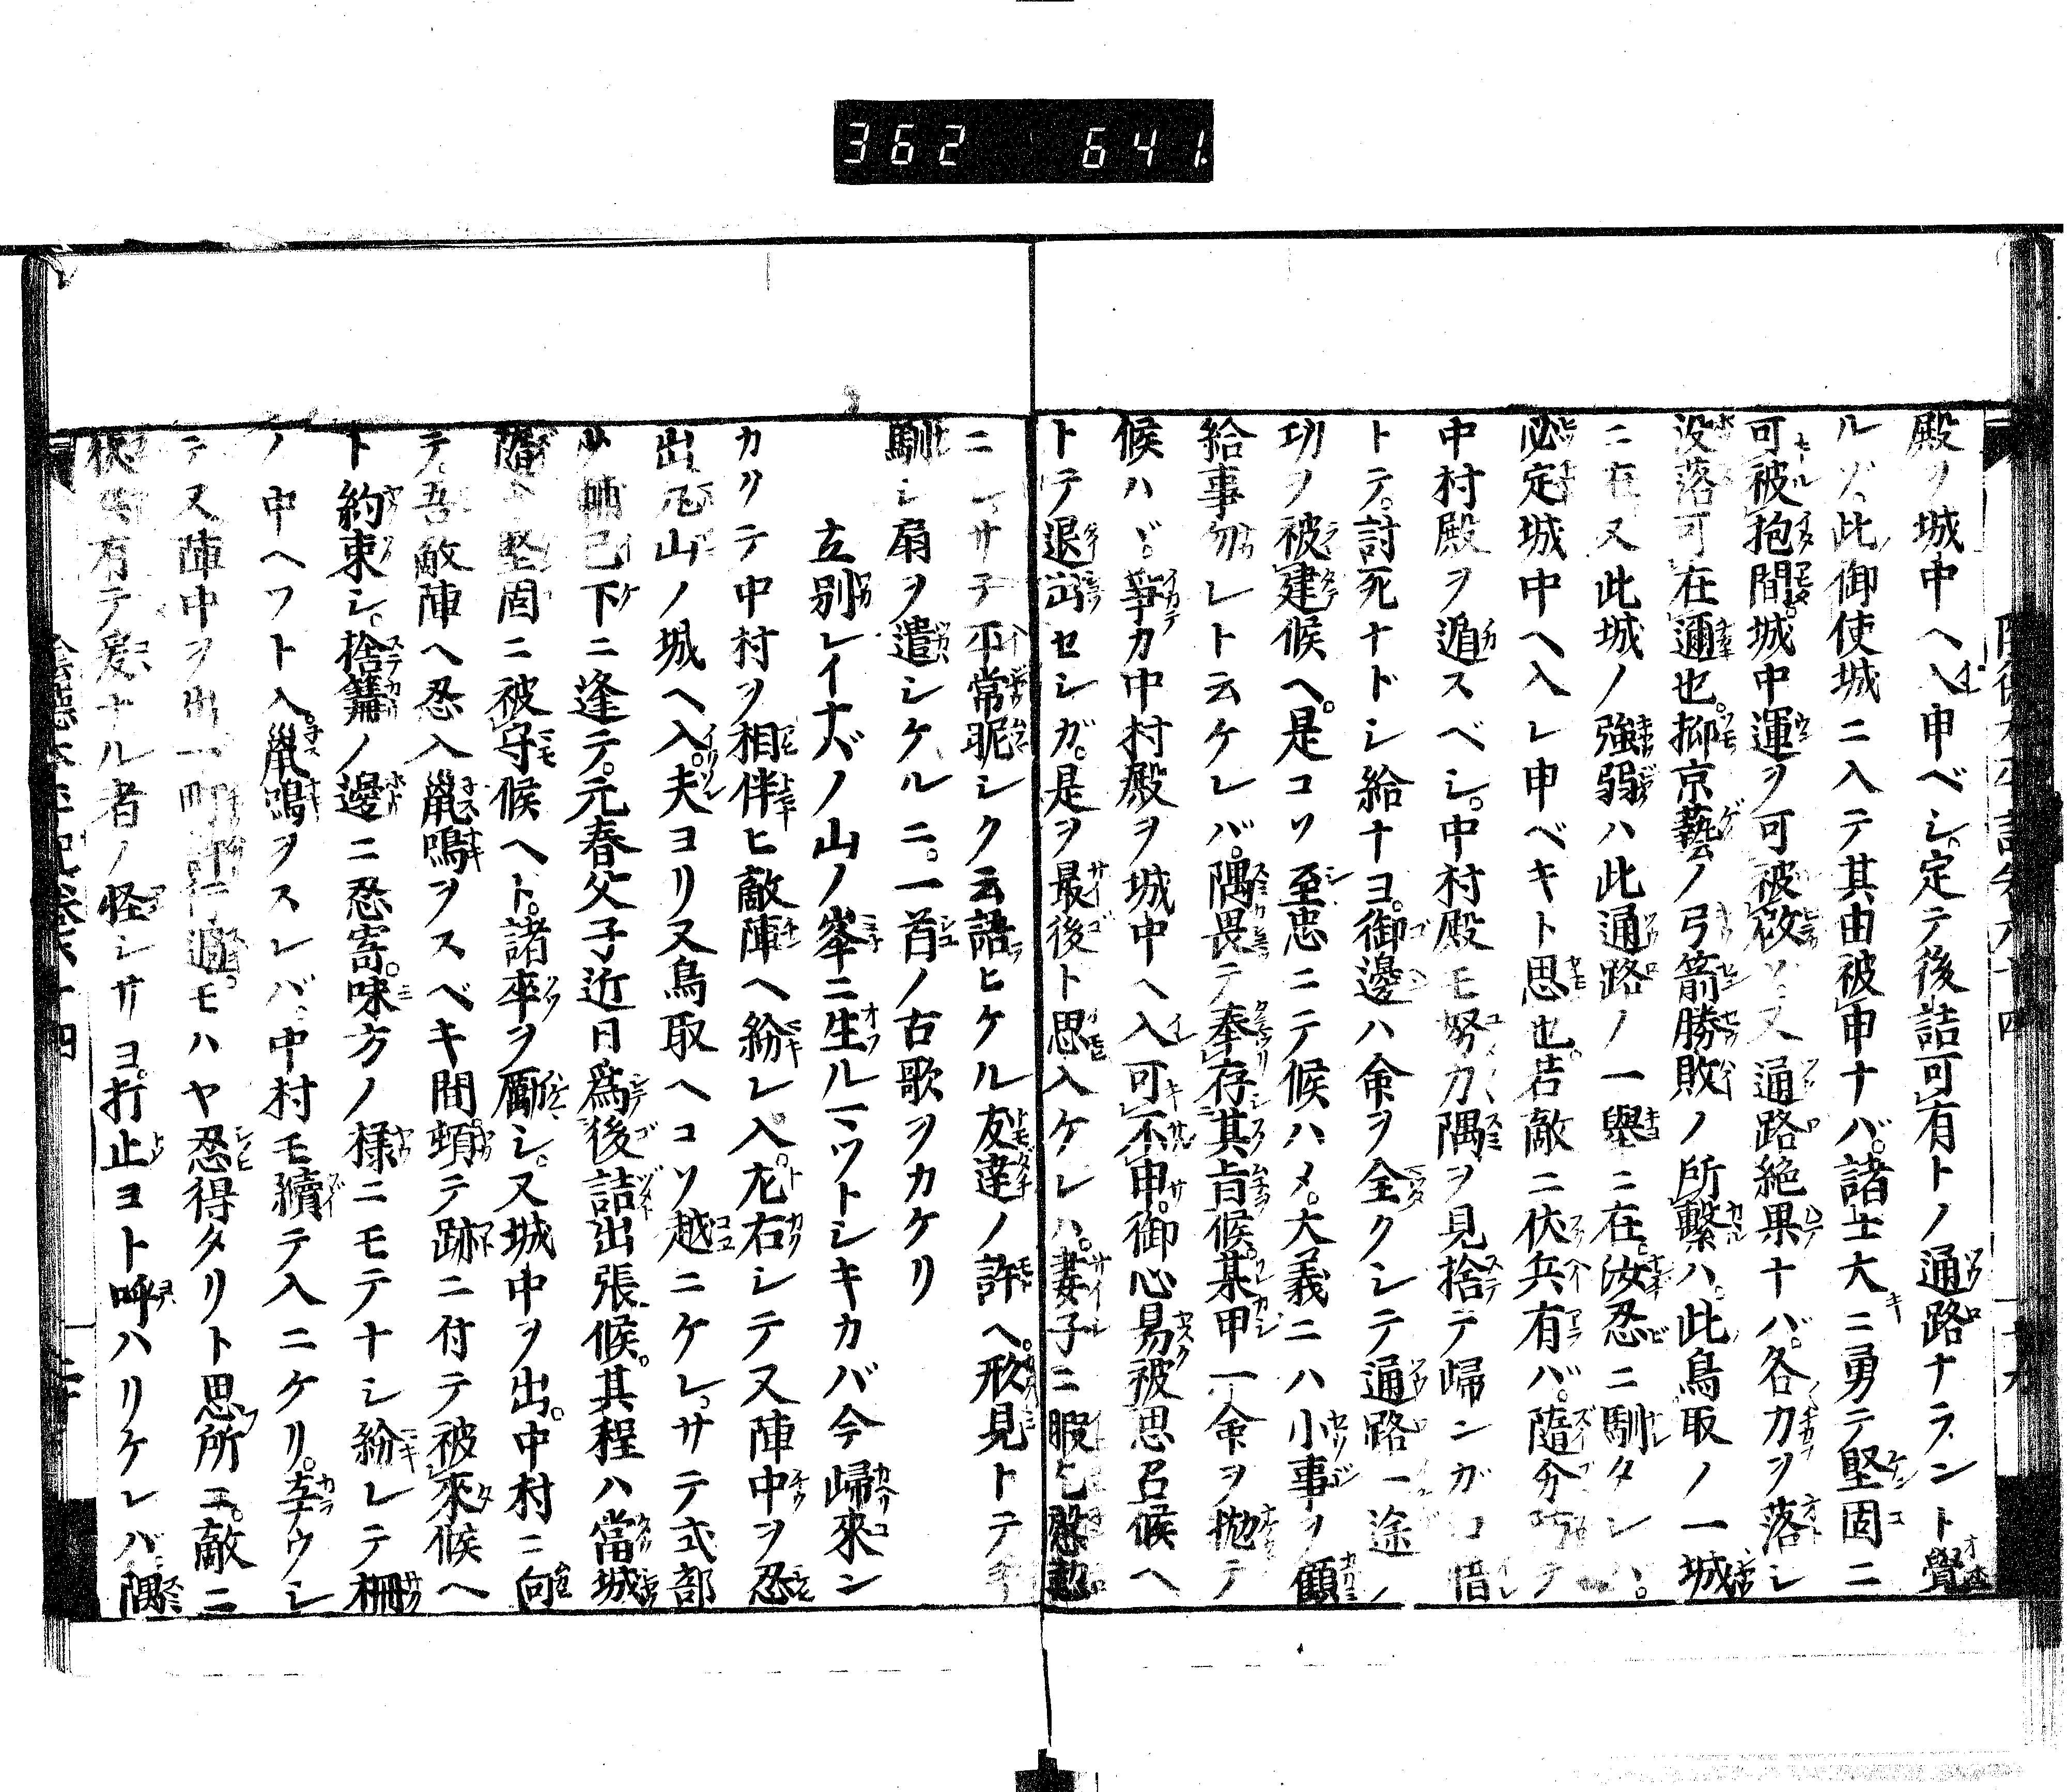 362 641.
殿ヲ城中ヘ入申ベシ。定テ後詰可有トノ通路ナラント覺
ルゾ、此御使城ニ入テ其由被申ナバ。諸士大ニ勇テ堅固ニ
可被抱間。城中運ヲ可被啟。又通路絶果ナバ。各力ヲ落シ
没落可在邇也。抑京藝ノ弓箭勝敗ノ所繫ハ。此鳥取ノ一城
ニ在。又此城ノ強弱ハ此通路ノ一舉ニ在。汝忍ビニ馴タレバ。
必定城中ヘ入レ申ベキト思也。若敵ニ伏兵有バ。隨分防テ
中村殿ヲ遁スベシ。中村殿モ努力隅ヲ見捨テ歸ンガ口惜
トテ。討死ナドシ給ナヨ。御邊ハ命ヲ全クシテ通路一途ノ
功ヲ被建候ヘ。是コソ至忠ニテ候ハメ。大義ニハ小事ヲ顧
給事勿レト云ケレバ。隅畏テ奉存其旨候。某甲一命ヲ拋テ
候ハヾ。爭カ中村殿ヲ城中ヘ入可不申。御心易被思召候ヘ
トテ退出セシガ。是ヲ最後ト思入ケレハ。妻子ニ暇乞慇懃
ニシ。サテ不常昵シク云語ヒケル友達ノ許ヘ。形見トテ手
馴シ扇ヲ遣シケルニ。一首ノ古歌ヲカケリ
立別レイナバノ山ノ峯ニ生ルマツトシキカバ今歸來ン
カクテ中村ヲ相伴ヒ敵陣ヘ紛レ入。左右シテ又陣中ヲ忍
出丸山ノ城ヘ入。夫ヨリ又鳥取ヘコソ越ニケレ。サテ式部
少輔已下ニ逢テ。元春父子近日爲後詰出張候。其程ハ當城
堅固ニ被守候ヘト。諸卒ヲ勵シ。又城中ヲ出。中村ニ向
テ。吾敵陣ヘ忍入鼠鳴ヲスベキ間。頓テ跡ニ付テ被來候ヘ
ト約束シ。捨篝ノ邊ニ忍寄。味方ノ樣ニモテナシ紛レテ柵
ノ中ヘフト入。鼠鳴ヲスレバ。中村モ續テ入ニケリ。辛ウシ
テ又陣中ヲ出一町許行過。モハヤ忍得タリト思所ニ。敵ニ
有テ爰ナル者ノ怪シサヨ。打止ヨト呼ハリケレバ。隅